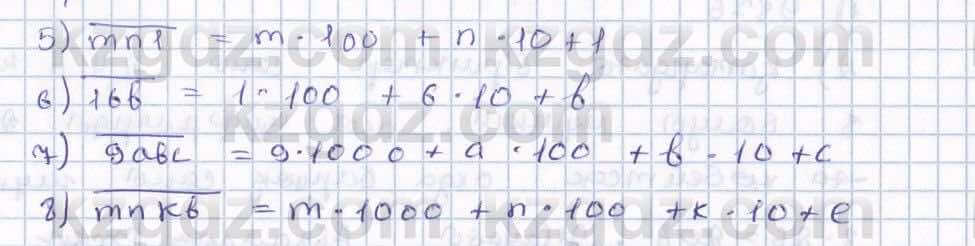 5) mn1 = m · 100 + n · 10 + 1
6) 16b = 1 · 100 + 6 · 10 + b
7) 9abc = 9 · 1000 + a · 100 + b · 10 + c
8) mnkb = m · 1000 + n · 100 + k · 10 + e
kzgdz.com
kzgdz.com
kzgdz.com